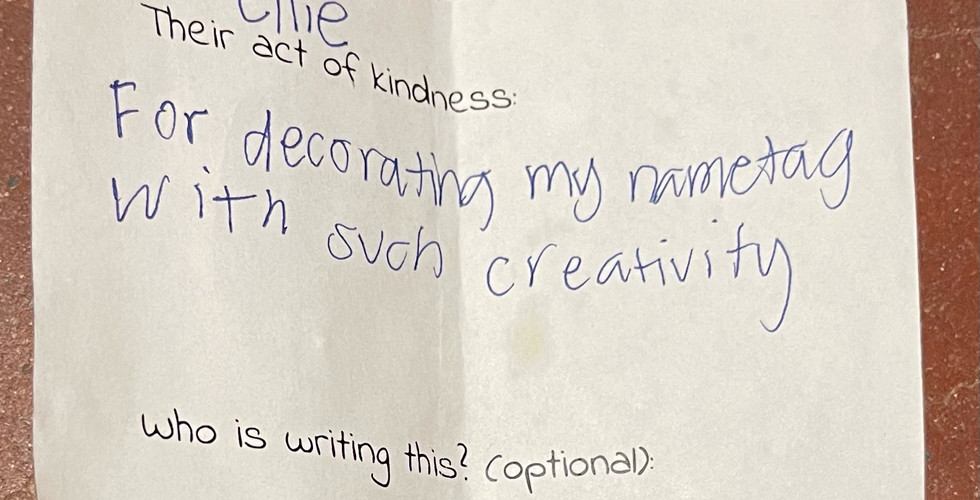 Their act of kindness:
For decorating my nametag
with such creativity
Who is writing this? (optional):